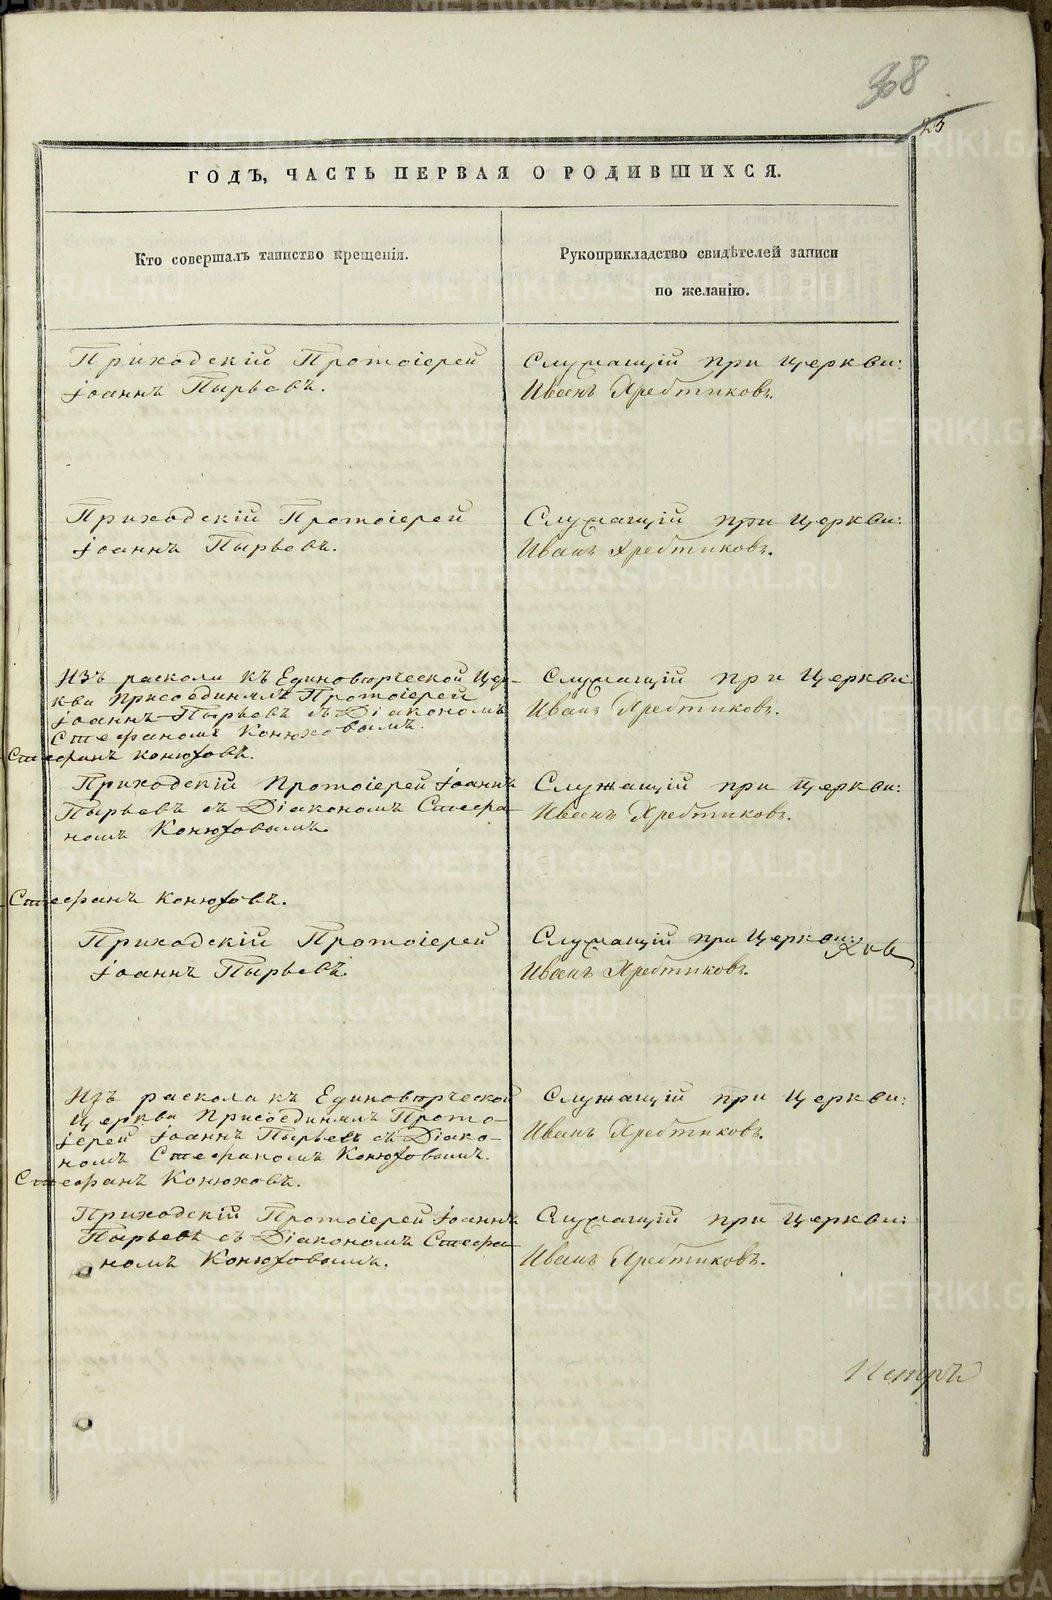 368
23
ГОДЪ, ЧАСТЬ ПЕРВАЯ О РОДИВШИХСЯ.
Кто совершалъ таинство крещенія.
Рукоприкладство свидѣтелей записи
по желанію.
Приходскій Протоіерей
Іоаннъ Пырьевъ.
Служащій при Церкви:
Иванъ Хребтиковъ.
Приходскій Протоіерей
Іоаннъ Пырьевъ.
Служащій при Церкви:
Иванъ Хребтиковъ.
Изъ раскола къ Единовѣрческой Цер-
кви присоединялъ Протоіерей
Іоаннъ Пырьевъ съ Діакономъ
Стефаномъ Конюховымъ.
Стефанъ Конюховъ.
Служащій при Церкви
Иванъ Хребтиковъ.
Приходскій Протоіерей Іоаннъ
Пырьевъ съ Діакономъ Стефа-
номъ Конюховымъ
Стефанъ Конюховъ.
Служащій при Церкви:
Иванъ Хребтиковъ.
Приходскій Протоіерей
Іоаннъ Пырьевъ.
Служащій при Церкви:
Иванъ Хребтиковъ.
Изъ раскола къ Единовѣрческой
Церкви присоединялъ Прото-
іерей Іоаннъ Пырьевъ съ Діако-
номъ Стефаномъ Конюховымъ.
Стефанъ Конюховъ.
Служащій при Церкви:
Иванъ Хребтиковъ.
Приходскій Протоіерей Іоаннъ
Пырьевъ съ Діакономъ Стефа-
номъ Конюховымъ.
Служащій при Церкви:
Иванъ Хребтиковъ.
Петръ
METRIKI.GASO-URAL.RU